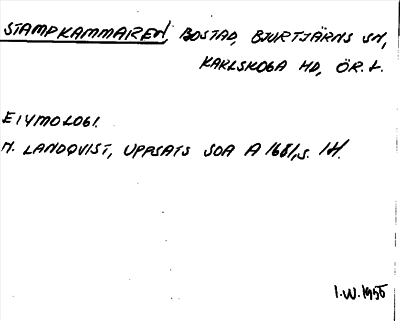 STAMPKAMMAREN, BOSTAD, BJURTJÄRNS SN,
KARLSKOGA HD, ÖR. L.
ETYMOLOGI.
H. LANDQVIST, UPPSATS SOA A 1681, S. 14.
I.W. 1955